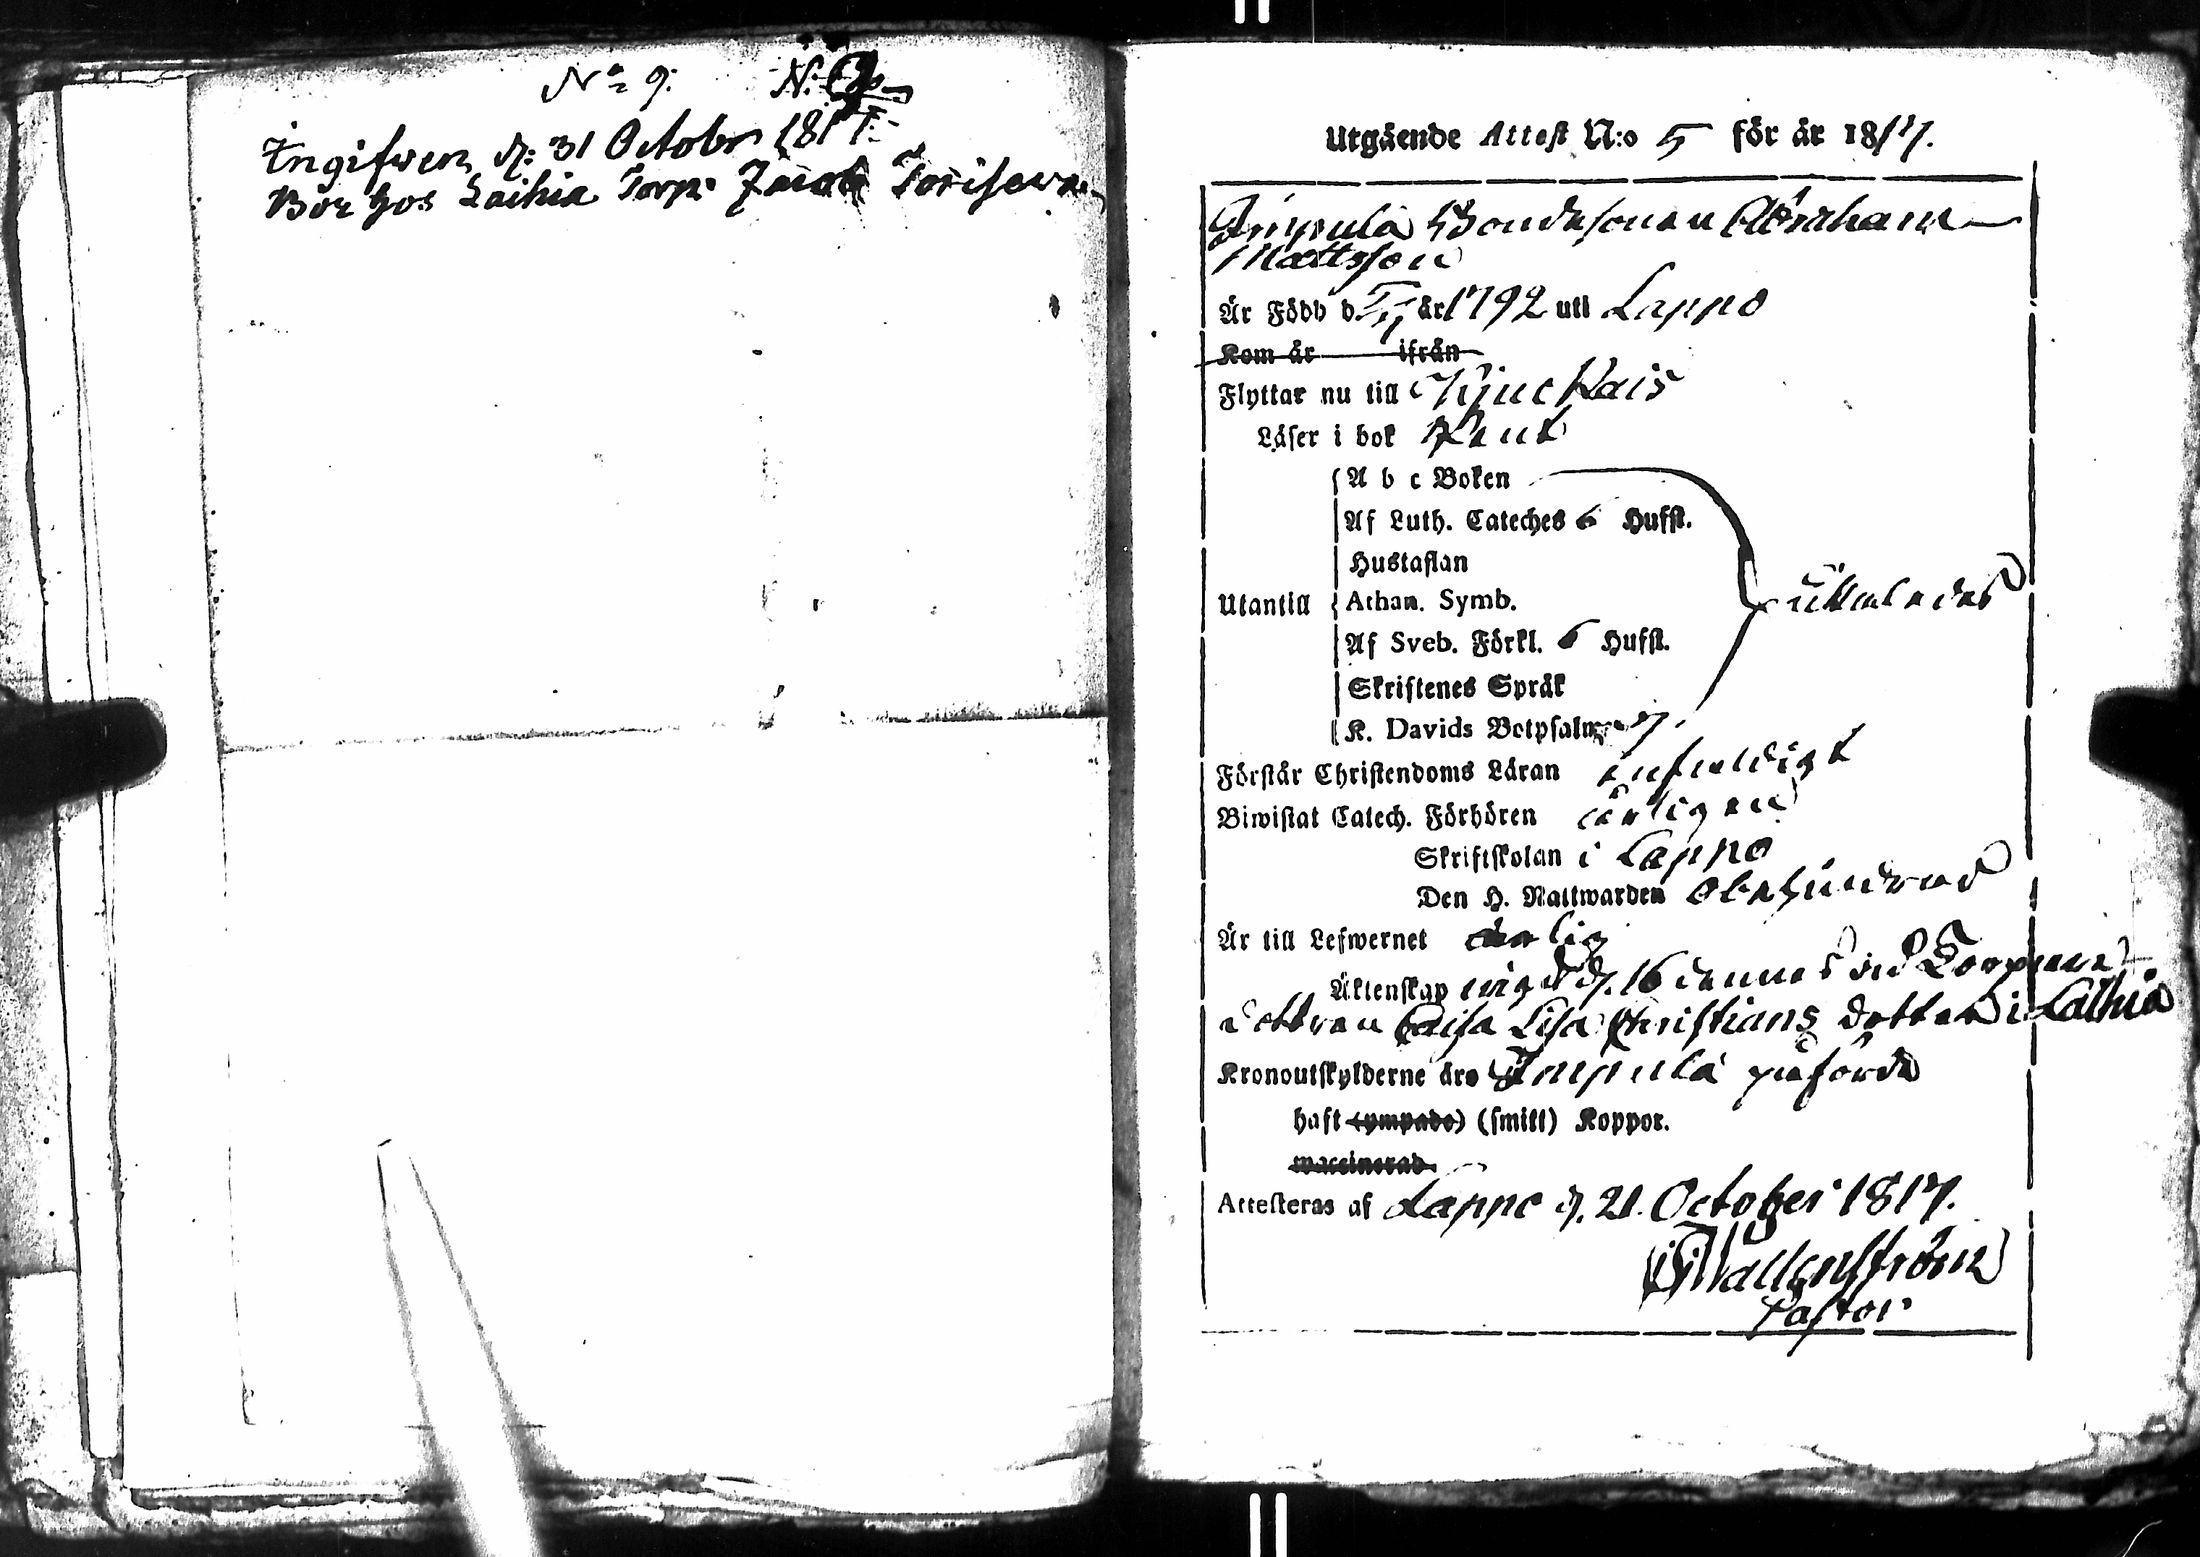 N:o 9. N: 9
Ingifwen d: 31 Octobr 1817:
Bor hos Laihia Torp: Jacob
Utgående Attest N:o 5 för år 1817.
Impula Bondesonen Abraham
Mattsson
Är Född d. år 1792 uti Lappo
Kom år ifrån
Flyttar nu till
Läser i bok rent
A b c Boken
Af Luth. Cateches 6 Hufst.
Hustaflan
Utantill Athan. Symb.
Af Sveb. Förkl. 6 Hufst.
Skriftenes Språk
K. Davids Botpsalmer 7.
Förstår Christendoms Läran enfaldigt
Biwistat Catech. Förhören årligen
Skriftskolan i Lappo
Den H. Nattwarden obehindrad
Är till Lefwernet ärlig
Äktenskap wigd d. 16 dennes wid Torpare
dottren Caisa Lisa Christians dotter i Laihia
Kronoutskylderne äro Impula påförde
haft (ympade) (smitt) Koppor.
waccinerad
Attesteras af Lappo d. 21. October 1817.
Wallenström
Pastor